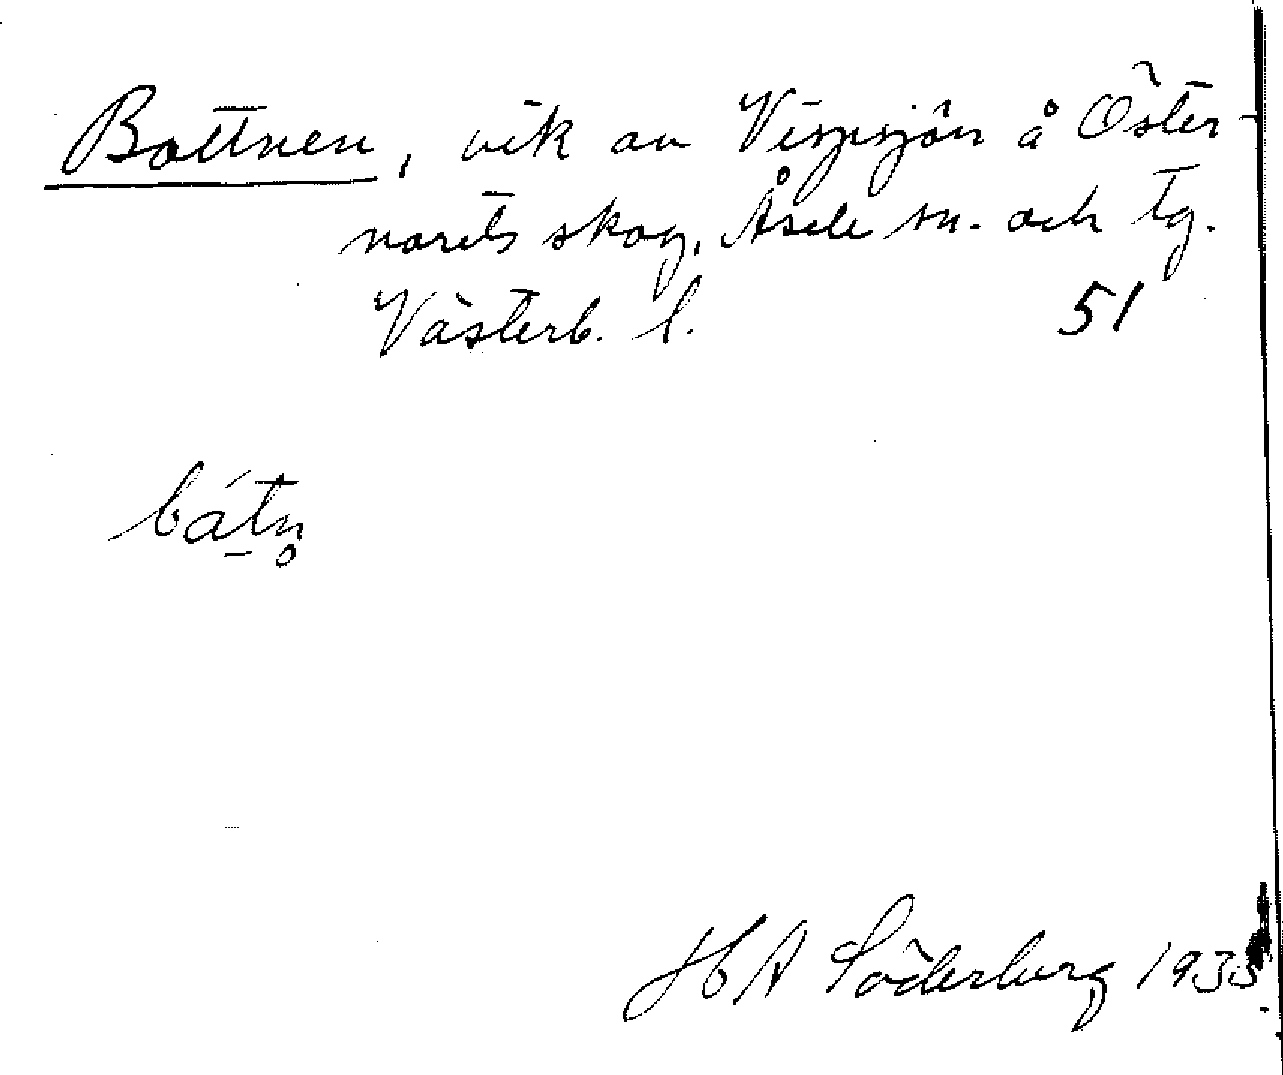 Bottnen, vik av Vispsjön å Öster-
norets skog, Åsele sn. och tg.
Västerb. l. 51
bátn̥
H A Söderberg 1935